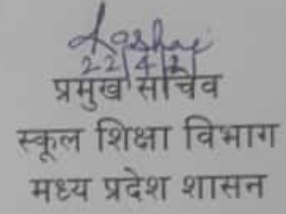 22/4/21
प्रमुख सचिव
स्कूल शिक्षा विभाग
मध्य प्रदेश शासन